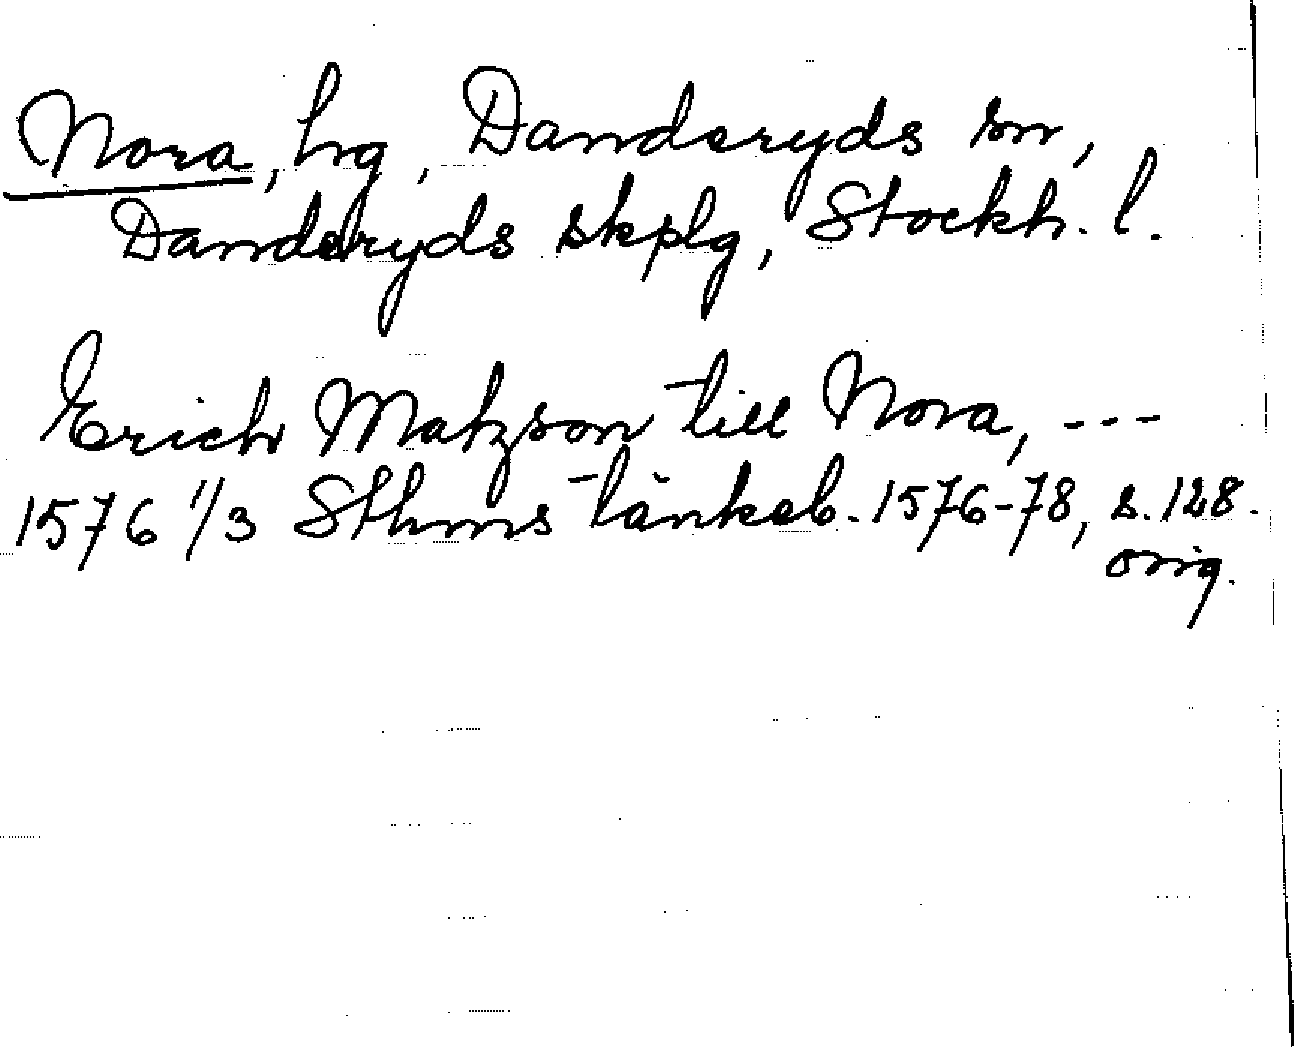 Nora, hg, Danderyds sn,
Danderyds skplg, Stockh. l.
Erich Matzson till Nora, ---
1576 1/3 Sthms tänkeb. 1576-78, s. 128.
orig.